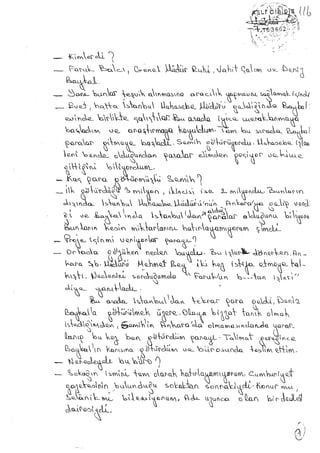 116
— Kimlerdi ?
— Faruk Balcı, Genel Müdür Ruhi, Vahit Çalım ve Deniz
Baykal
— Yani bunlar teşvik alınmasına aracılık yapmanı sağlamak için
— Evet, hatta İstanbul Muhasebe Müdürü geldiğinde Baykal'
evinde birlikte çalıştılar. Bu arada iyice meraklanmaya
başladım ve araştırmaya koyuldum. Tam bu sırada Baykal
paralar gitmeye başladı. Semih götürüyordu. Muhasebe işle
leri bende olduğundan paralar elimden geçiyor ve kime
gittiğini biliyordum.
— Kaç para götürmüştü Semih ?
— İlk götürdüğü 3 milyon, ikincisi ise 2 milyondu. Bunların
dışında İstanbul Muhasebe Müdürünün Ankara'ya gelip verd
ği ve Baykal'ında İstanbul'dan aldığı paralar olduğunu biliyoru
Bunların kesin miktarlarını hatırlayamıyorum şimdi.
— Proje için mi veriyorlar parayı ?
— Ortada göğüken neden buydu. Bu işler dönerken An-
kara Şb. Müdürü Mehmet Bey iki kez istifa etmeye kal-
kıştı. Nedenini sorduğumda Faruk'un b...tan işleri"
diye yanıtladı.
Bu arada, İstanbul'dan tekrar para geldi, Deniz
Baykal'a götürülmek üzere. Olaya bizzat tanık olmak
istediğimden, Semih'in Ankara'da olmamasındanda yarar-
lanıp bu kez ben götürdüm parayı. Talimat gereğince
Baykal'ın karısına götürdüm ve bürosunda teslim ettim.
— Neredeydi bu büro ?
— Sokağın ismini tam olarak hatırlayamıyorum. Cumhuriyet
gazetesinin bulunduğu sokaktan sonrakiydi. Konur mu,
Selanik mi bilemiyorum, Ada ucunca olan bir
dairesiydi.